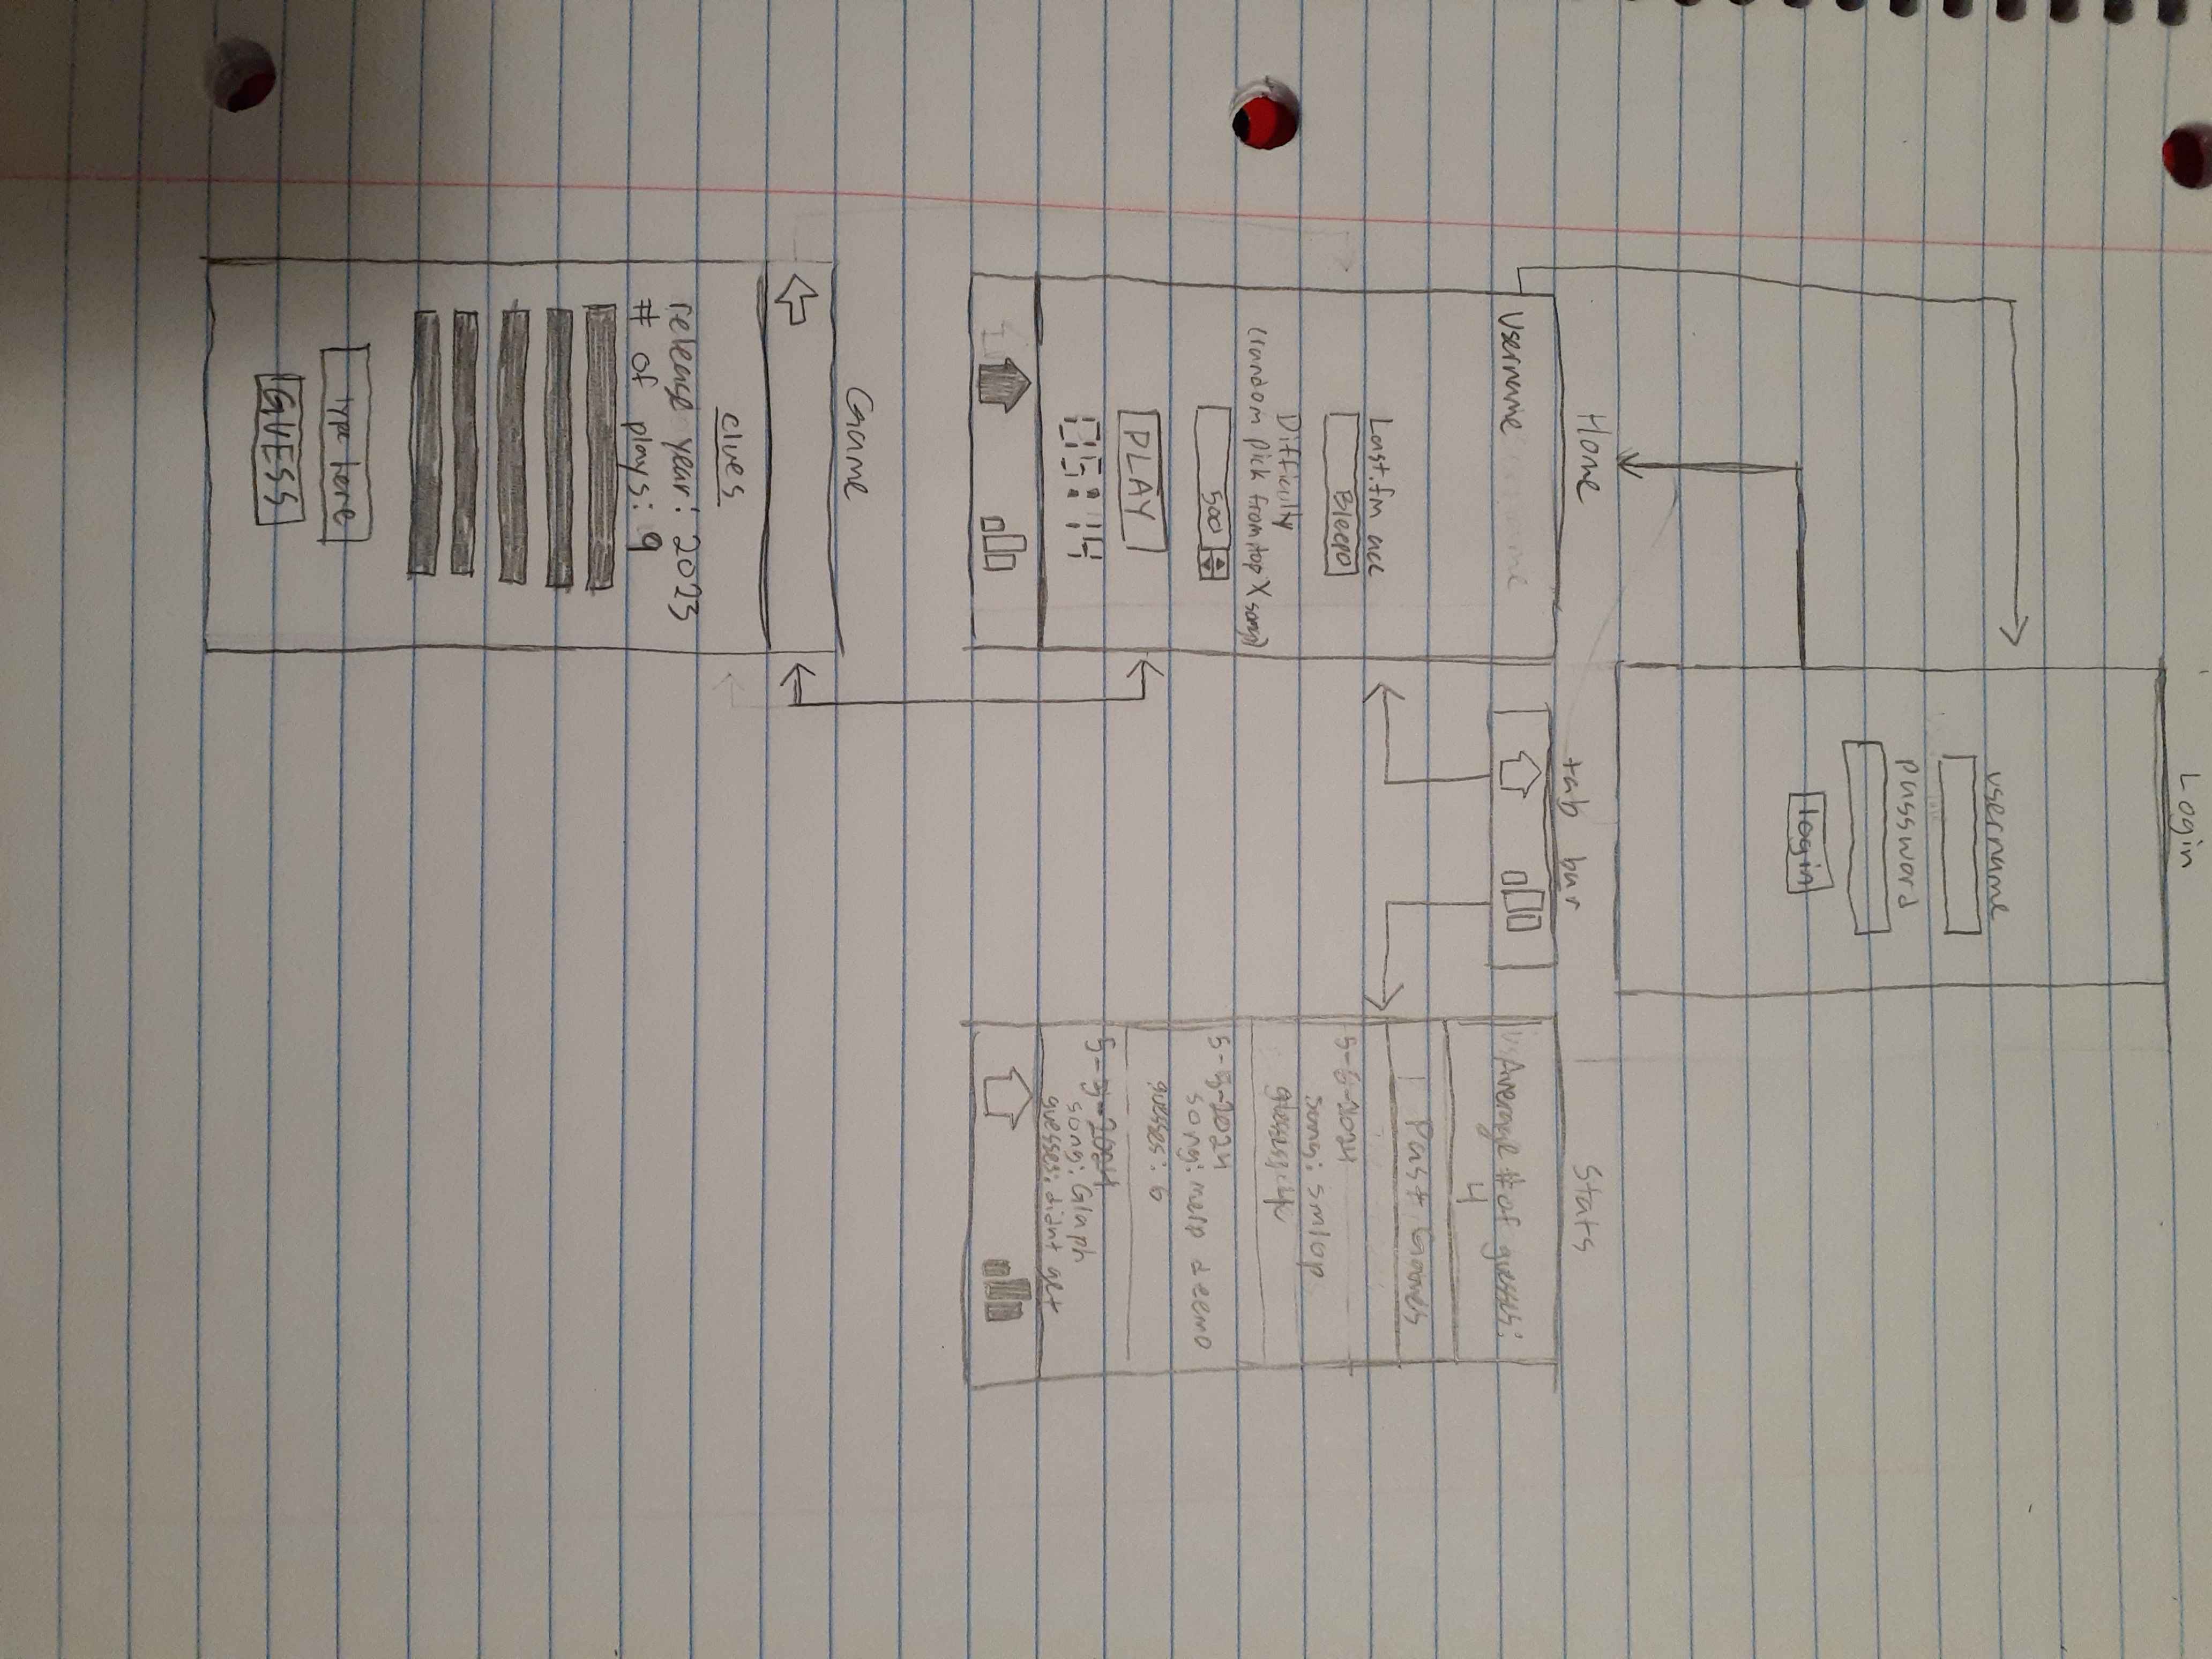 Login
username
password
login
Home
tab bar
Stats
Username
Last.fm acc
Bleepo
Difficulty
(random pick from top X songs)
500
PLAY
05:14
Average # of guesses:
4
Past Games
5-6-2024
song: smlop
guesses: 4
5-5-2024
song: melp deemo
guesses: 6
5-3-2024
song: Glaph
guesses: didnt get
Game
clues
release year: 2023
# of plays: 9
type here
GUESS